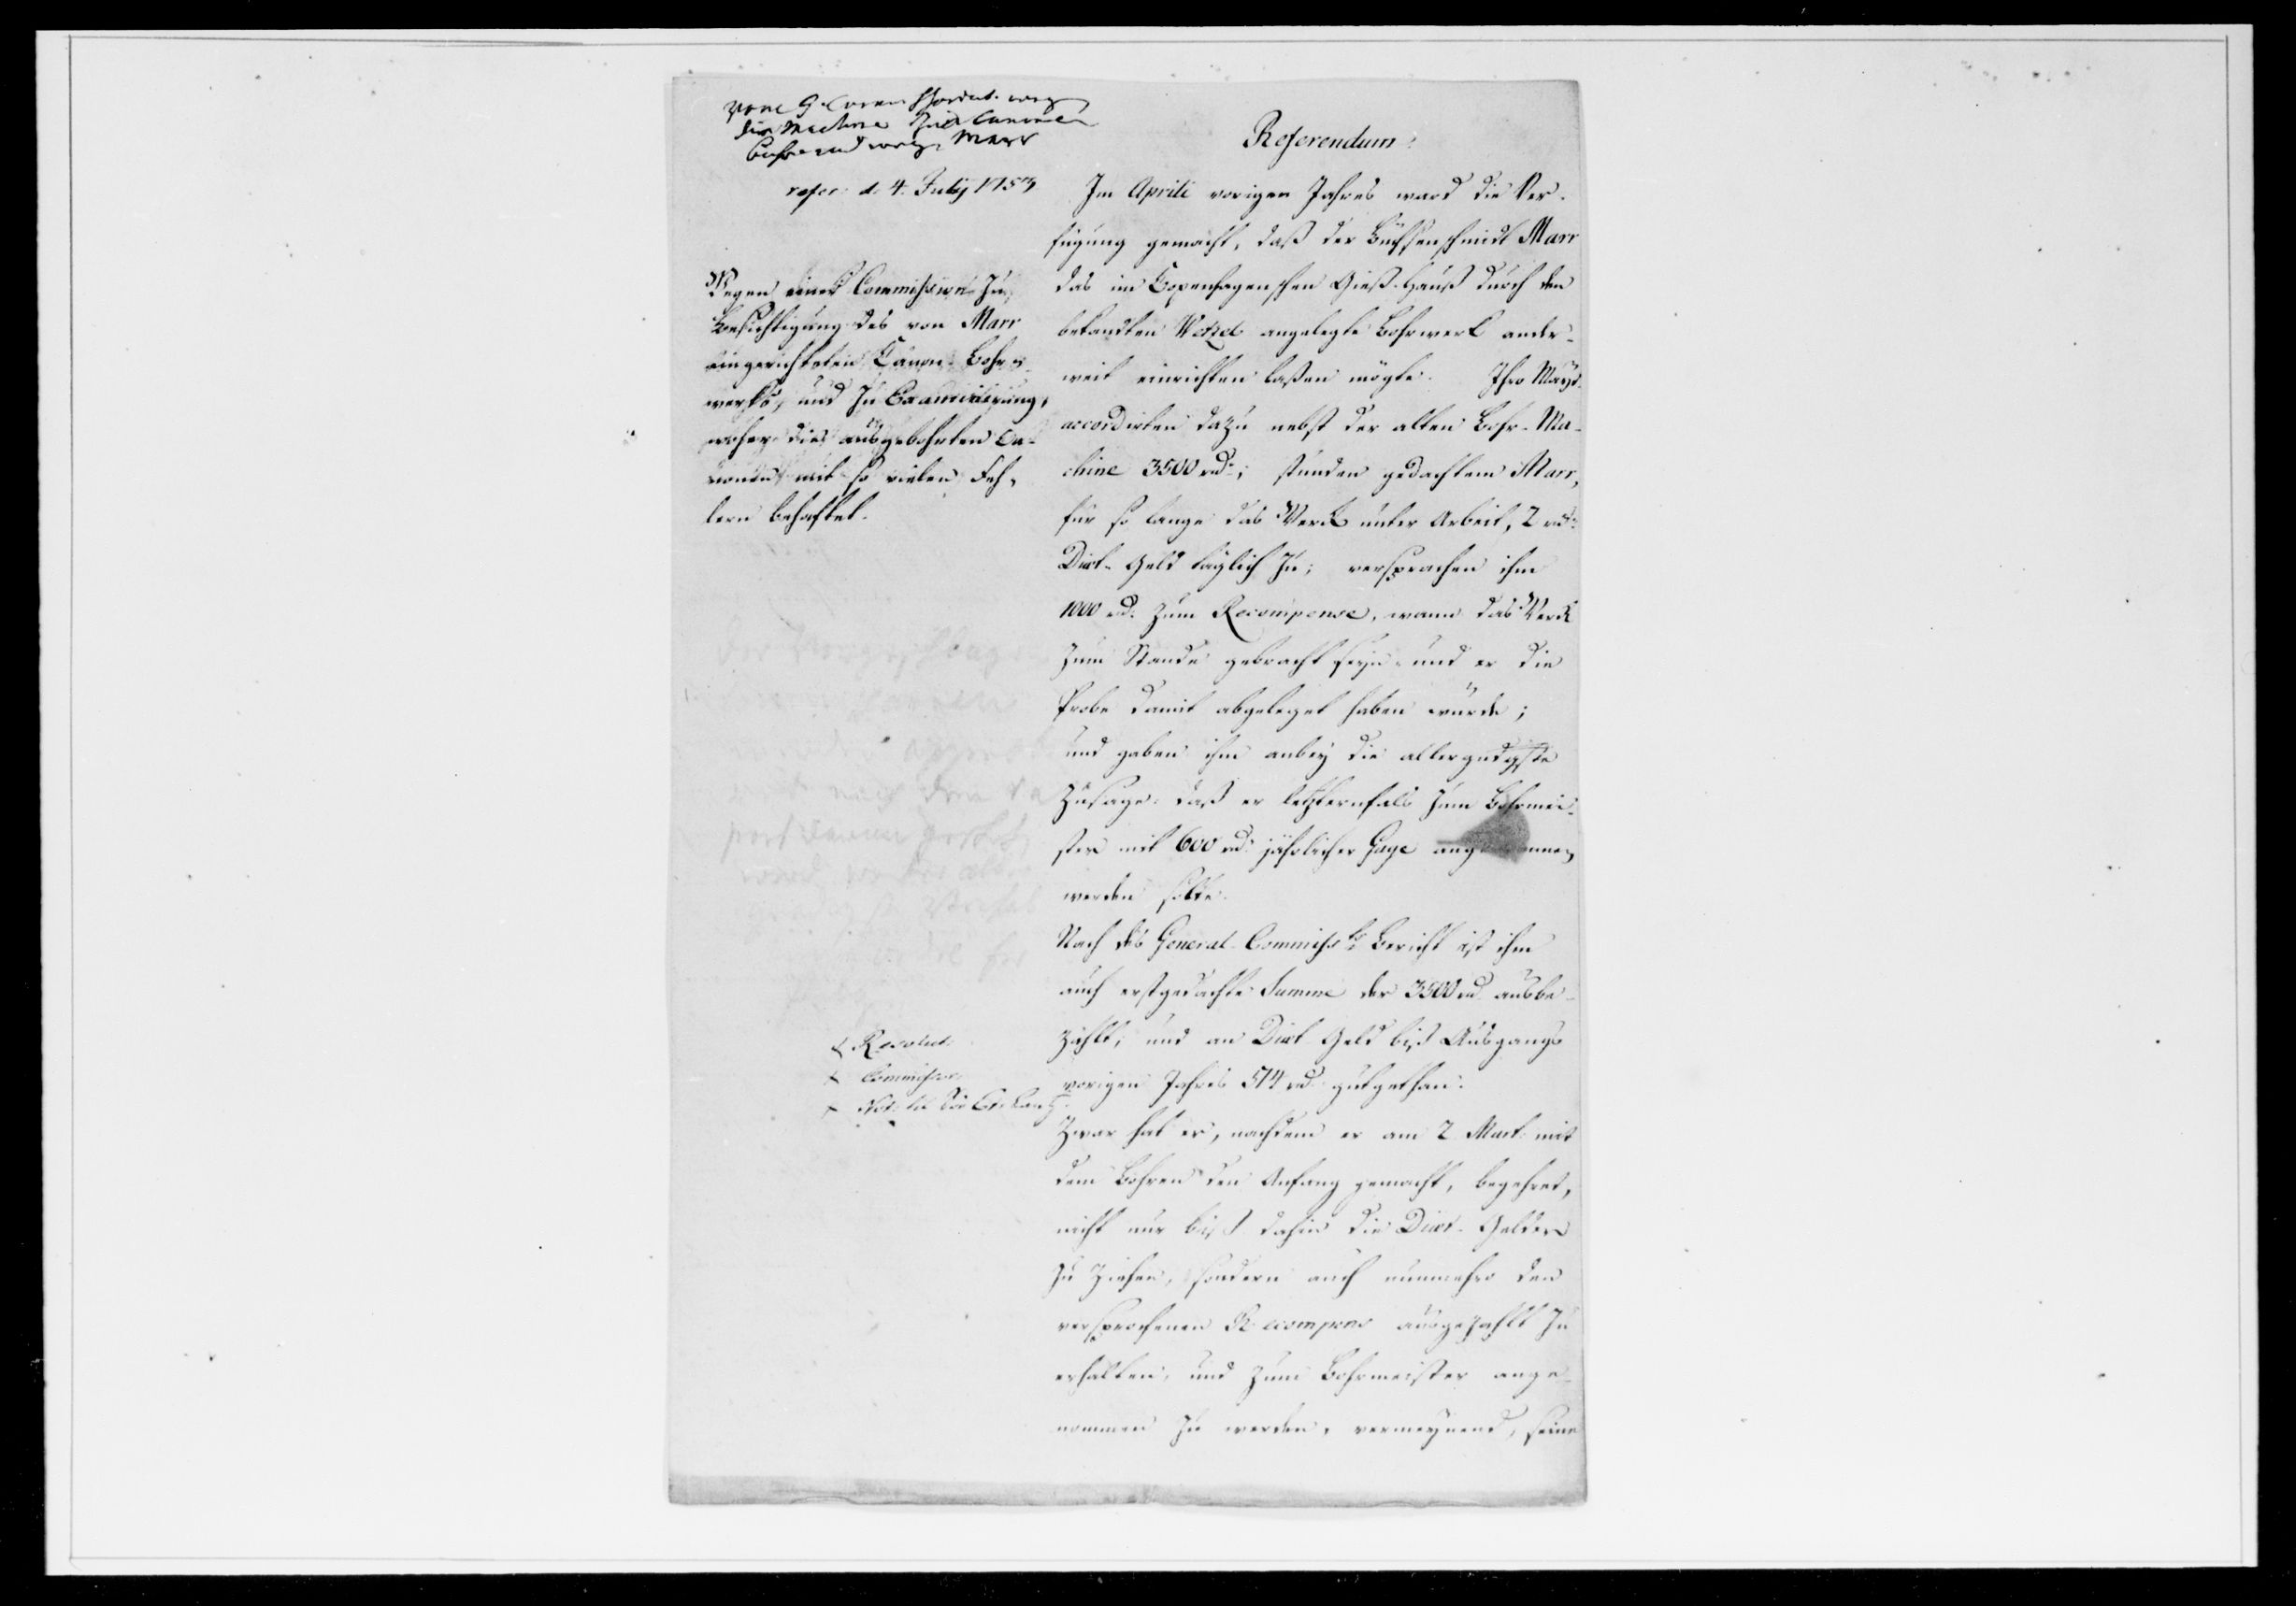 refer: d. 4. July 1753
Wegen einer Commission zu
Besichtigung des von Marr
eingerichteten Canon-Bohr-
werks, und zu Examinirung,
woher die ausgebohrten Ca-
nonen mit so vielen Feh-
lern behaftet.
Resolut:
Commission
Referendum:
Im Aprili vorigen Jahres ward die Ver-
fügung gemacht, daß der Büchsenschmidt Marr
das im Copenhagenschen Gieß-Hauß durch den
bekandten Wetzel angelegte Bohrwerk ander-
weit einrichten laßen mögte. Ihro Mayt.
accordirten dazu nebst der alten Bohr-Ma-
chine 3500 rd:; stunden gedachtem Marr,
für so lange das Werck unter Arbeit, 2 rd:
Diæt-Geld täglich zu; versprachen ihm
1000 rd: zum Recompense, wann das Werck
zum Stande gebracht seyn und er die
Probe damit abgeleget haben würde;
und gaben ihm anbey die allergndgste
Zusage: daß er letzternfals zum Bohrmei-
ster mit 600 rd: jährlicher Gage angenommen
werden solte.
Nach des General-Commiss. Bericht ist ihm
auch erstgedachte Summe der 3500 rd ausbe-
zahlt, und an Diæt Geld biß Ausgangs
vorigen Jahres 514 rd: gutgethan.
Zwar hat er, nachdem er am 2 Mart: mit
dem Bohren den Anfang gemacht, begehret,
nicht nur biß dahin die Diæt-Gelder
zu ziehen, sondern auch nunmehro den
versprochenen Recompens ausgezahlt zu
erhalten, und zum Bohrmeister ange-
nommen zu werden, vermeynend, seine